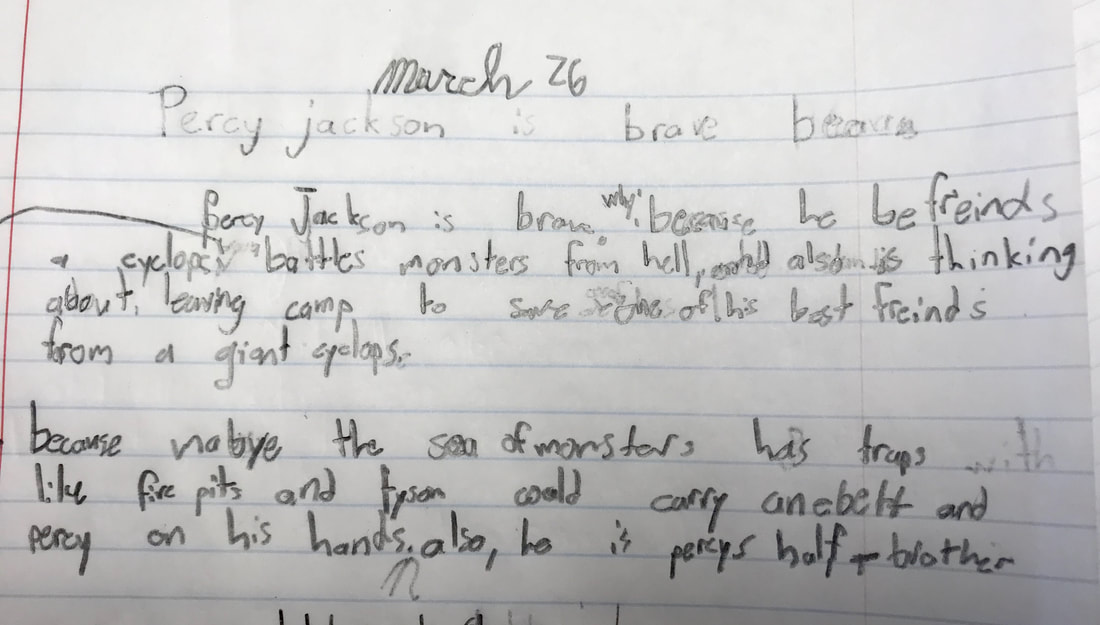 march 26
Percy jackson is brave
Percy Jackson is brave why? because he befreinds
a cyclops, battles monsters from hell, also is thinking
about, leaving camp to save one of his best freinds
from a giant cyclops.
because the sea of monsters has traps with
like fire pits and tyson could carry anebett and
percy on his hands. also, he is percys half-brother